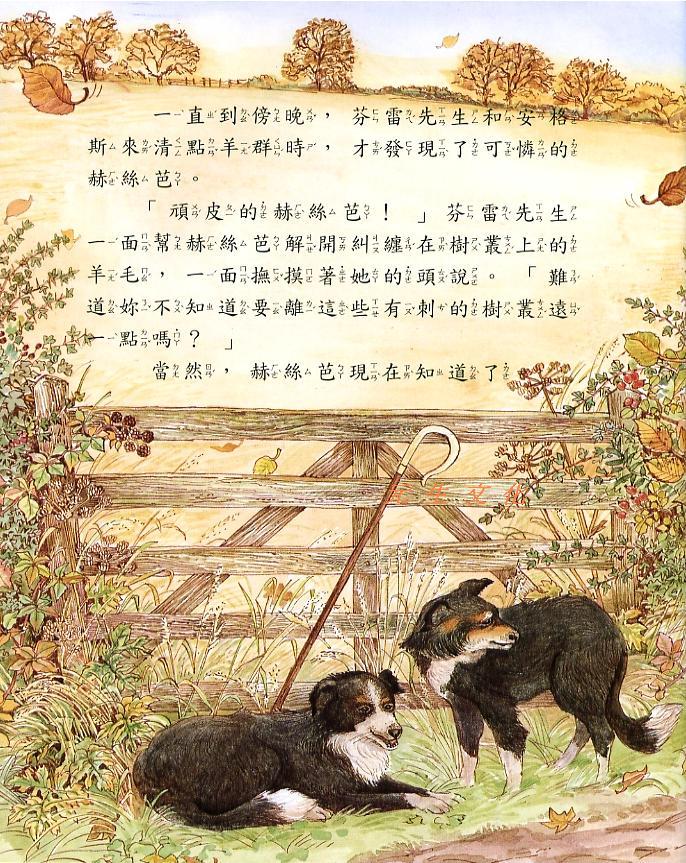 一直到傍晚，芬雷先生和安格
斯來清點羊群時，才發現了可憐的
赫絲芭。
「頑皮的赫絲芭！」芬雷先生
一面幫赫絲芭解開糾纏在樹叢上的
羊毛，一面撫摸著她的頭說。「難
道妳不知道要離這些有刺的樹叢遠
一點嗎？」
當然，赫絲芭現在知道了。